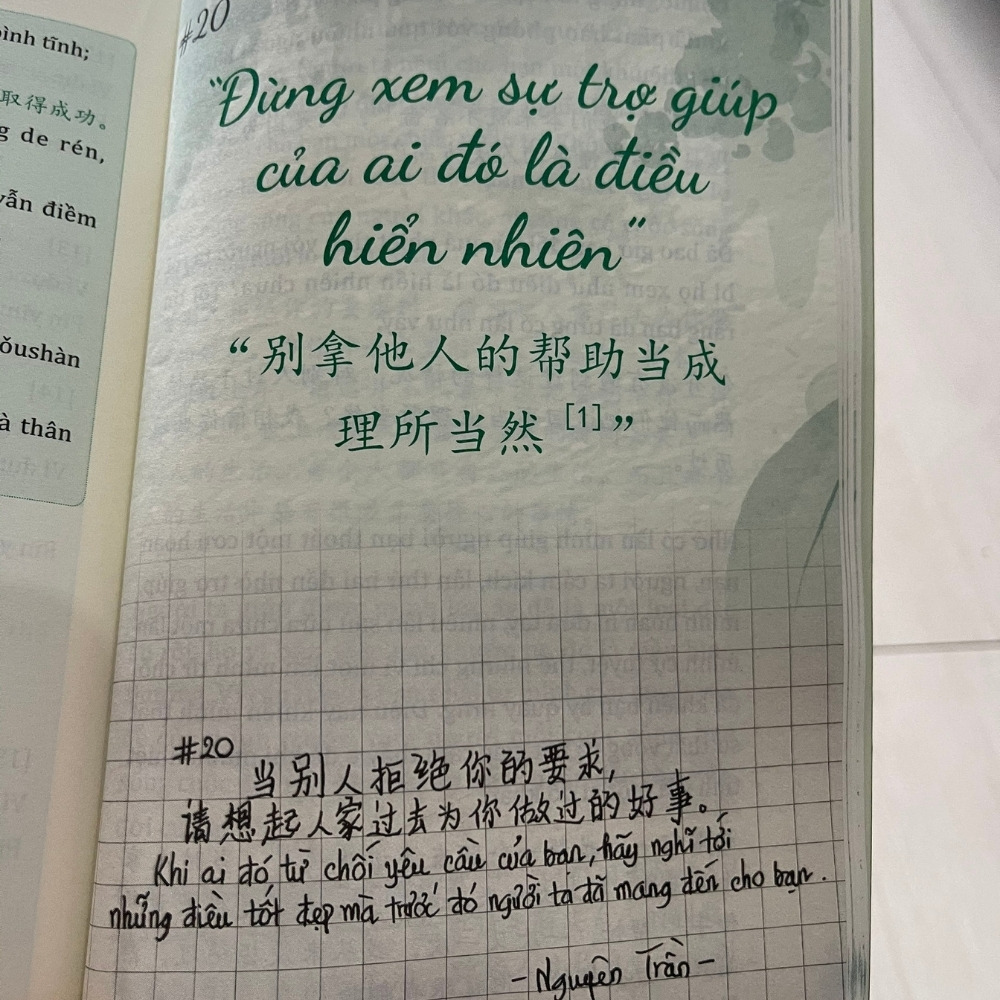 bình tĩnh;
取得成功。
g de rén,
vẫn điềm
ǒushàn
à thân
#20
“Đừng xem sự trợ giúp
của ai đó là điều
hiển nhiên”
“别拿他人的帮助当成
理所当然 [1]”
#20
当别人拒绝你的要求,
请想起人家过去为你做过的好事。
Khi ai đó từ chối yêu cầu của bạn, hãy nghĩ tới
những điều tốt đẹp mà trước đó người ta đã mang đến cho bạn.
- Nguyên Trần -